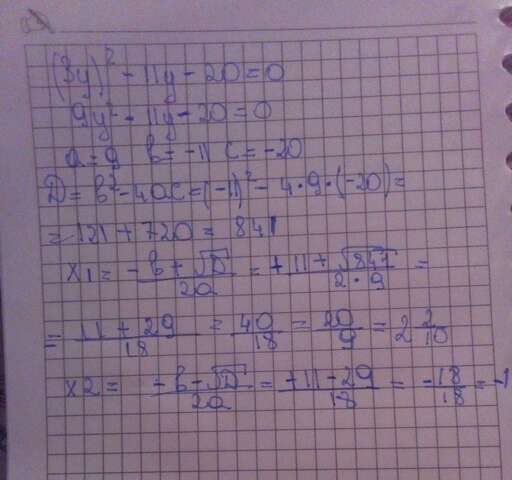 (3y)² - 11y - 20 = 0
9y² - 11y - 20 = 0
a = 9 b = -11 c = -20
D = b² - 4ac = (-11)² - 4·9·(-20) =
= 121 + 720 = 841
x1 = -b + √D / 2a = +11 + √841 / 2·9 =
= 11 + 29 / 18 = 40/18 = 20/9 = 2 2/10
x2 = -b - √D / 2a = +11 - 29 / 18 = -18/18 = -1